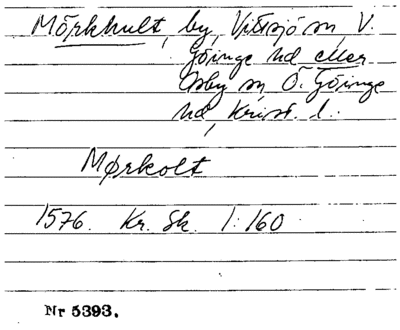 Mörkhult, by, Vittsjö sn, V.
Göinge hd eller
Osby sn Ö. Göinge
hd, Krist. l.
Mørkolt
1576. Kr. Sk. 1:160
Nr 5393.